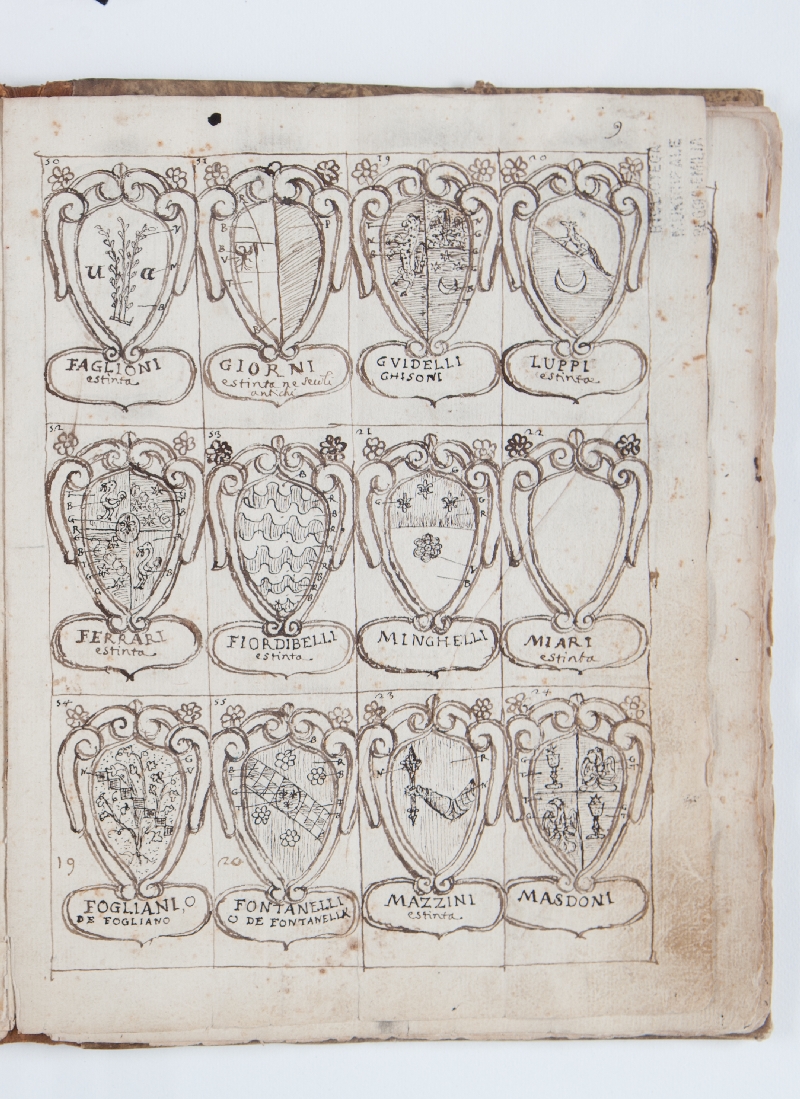 9
BIBLIOTECA
MUNICIPALE
REGGIO EMILIA
50
U a
FAGLIONI
estinta
51
GIORNI
estinta ne secoli
antichi
19
GVIDELLI
GHISONI
20
LUPPI
estinta
52
FERRARI
estinta
53
FIORDIBELLI
estinta
21
MINGHELLI
22
MIARI
estinta
54
19
FOGLIANI, O
DE FOGLIANO
55
20
FONTANELLI
O DE FONTANELLA
23
MAZZINI
estinta
24
MASDONI